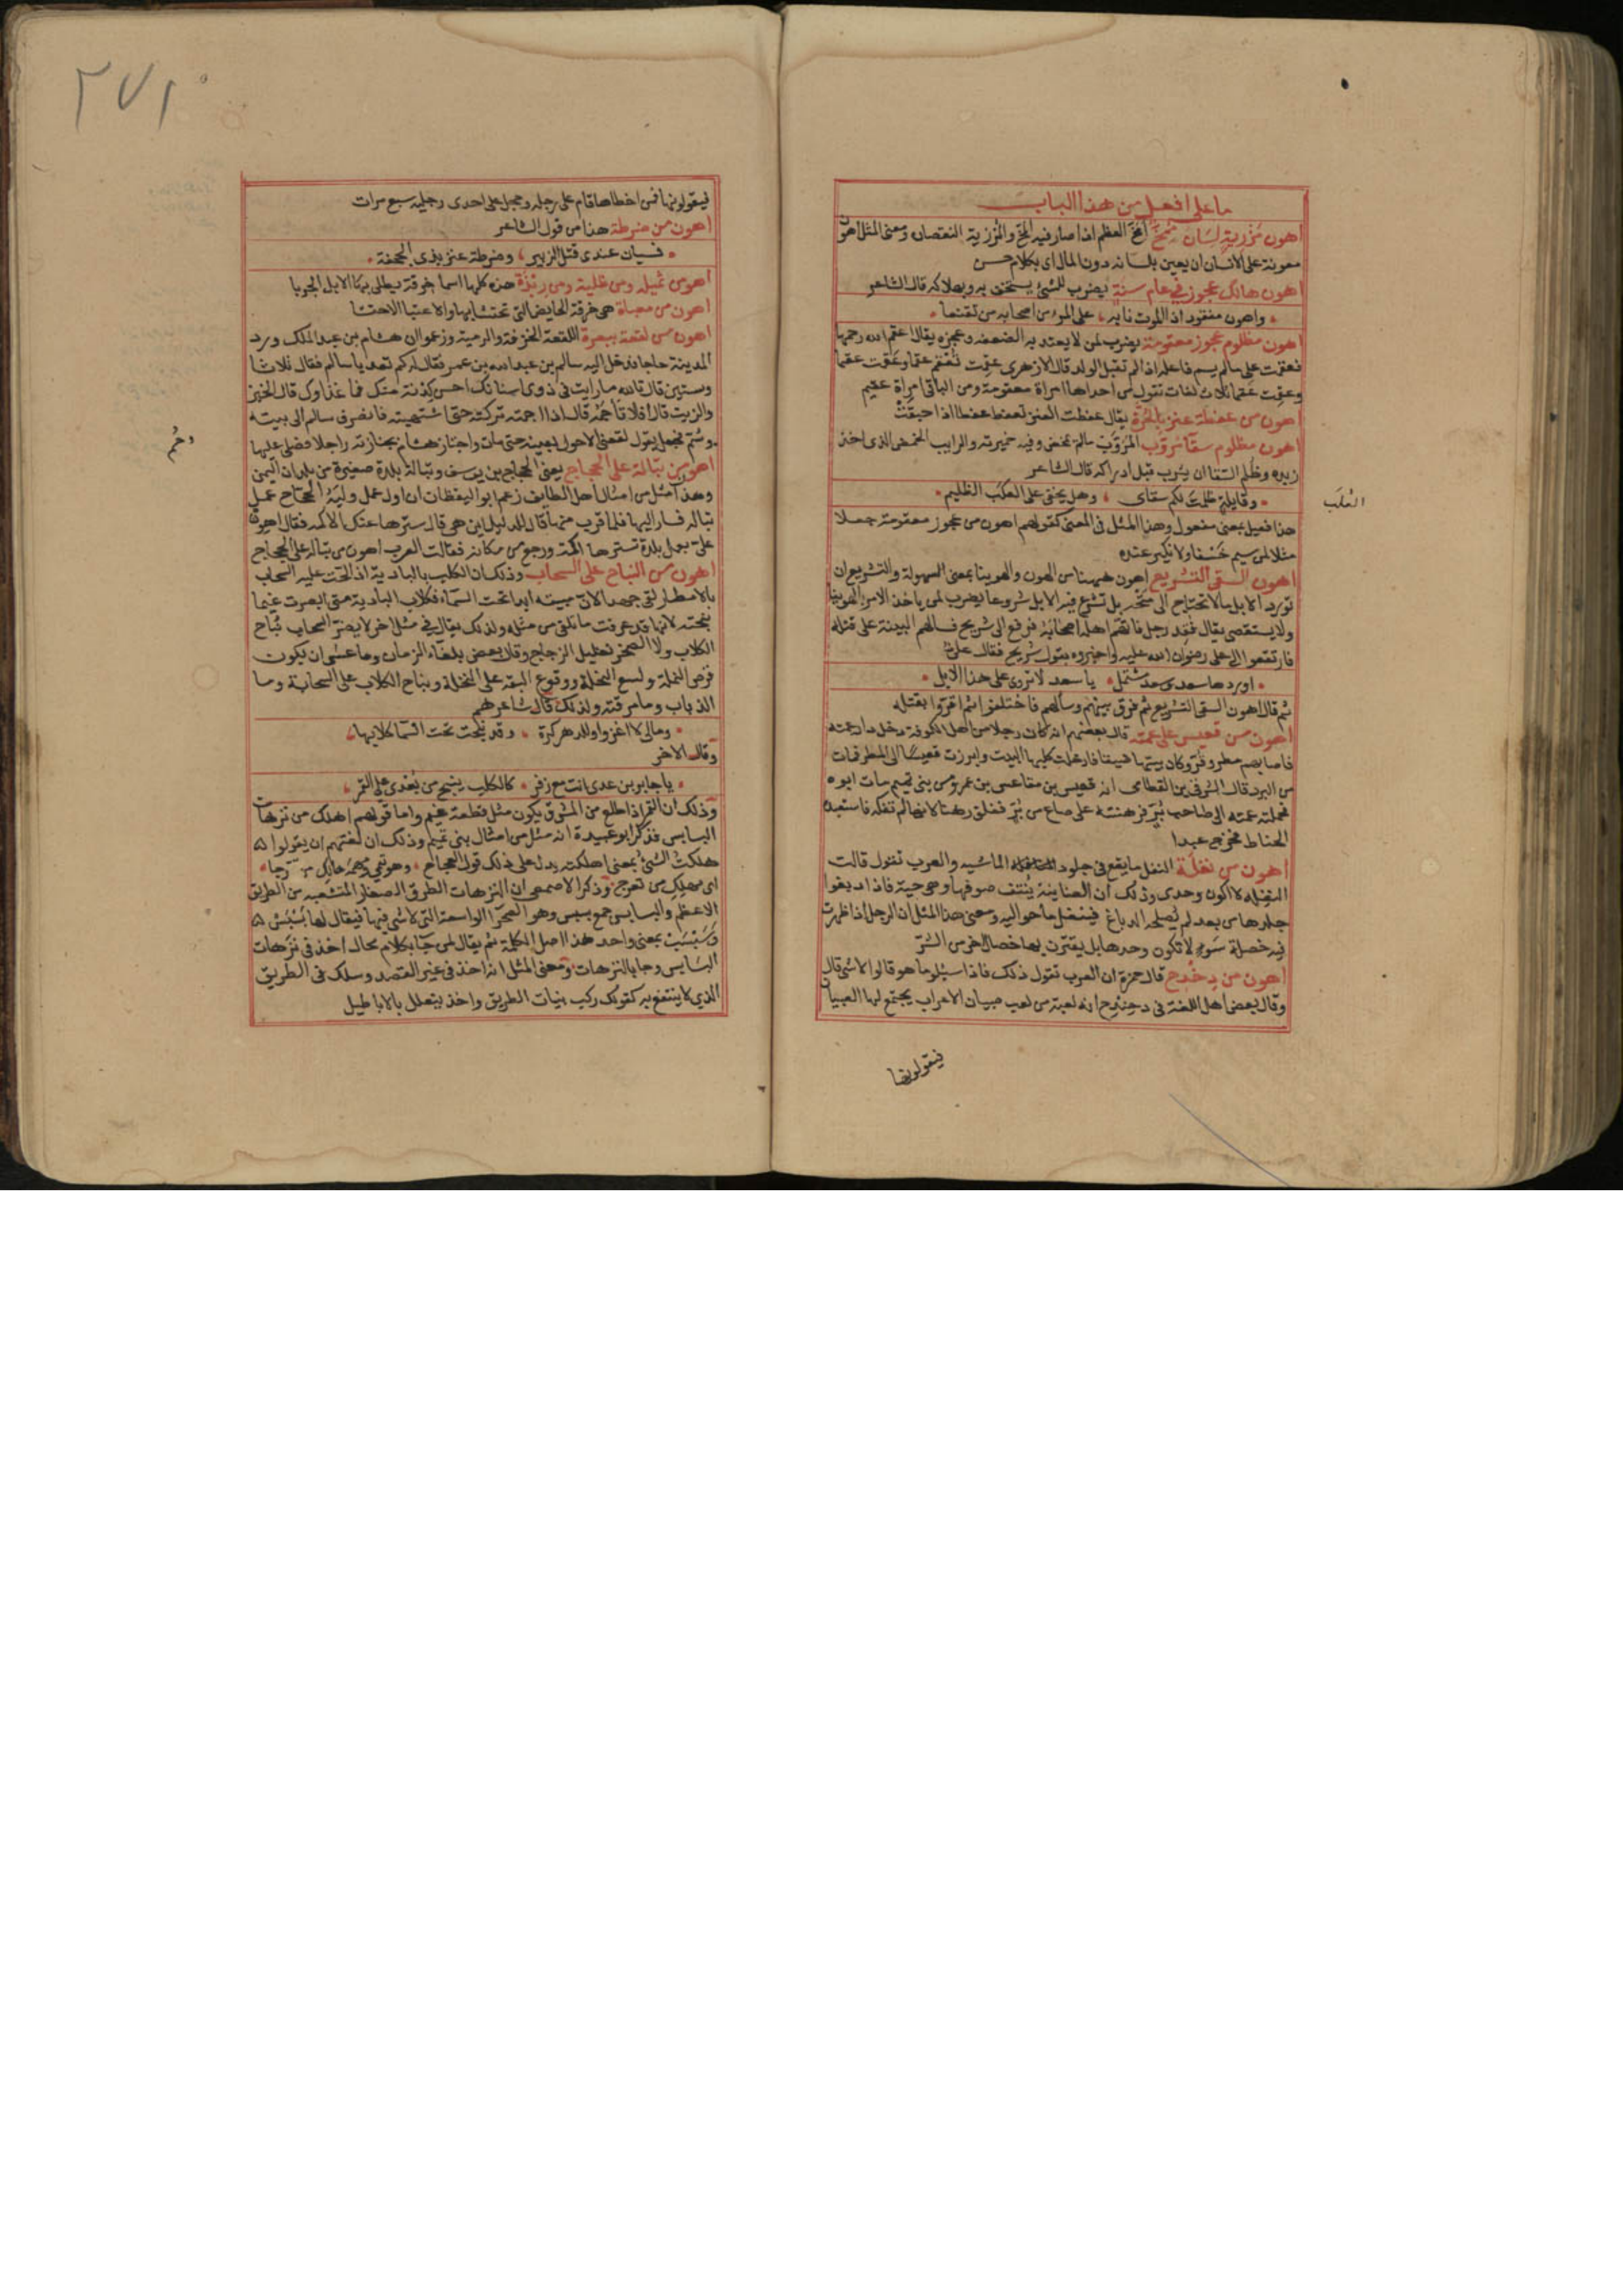 ما على افعل من هذا الباب
اهون مرزية لسان ممخ امخ العظم اذا صار فيه المخ والمرزية النقصان ومعنى المثل اهون
معونة على الانسان ان يعين بلسانه دون المال اى بكلام حسن
اهون هالك عجوز في عام سنة يضرب للشئ يستخف به وبهلاكه قال الشاعر
واهون مفقود اذا الموت نابه على المرء من اصحابه من تقنعا
اهون مظلوم عجوز معقومة يضرب لمن لا يعتد به لضعفه وعجزه يقال اعقم الله رحمها
فعقمت على ما لم يسم فاعله اذا لم تقبل الولد قال الازهرى عقمت تعقم عقما وعقمت عقما
وعقمت عقما ثلاث لغات تقول من احداها امراة معقومة ومن الباقى امراة عقيم
اهون من عفطة عنز بالحرة يقال عفطت العنز تعفط عفطا اذا حبقت
اهون مظلوم سقا مروب المروب ما لم يمخض وفيه خميرته والرايب المخيض الذى اخذ
زبده وظلم السقا ان يشرب قبل ادراكه قال الشاعر
وقايلة ظلمت لكم سقاى وهل يخفى على العكد الظليم
هذا فعيل بمعنى مفعول وهذا المثل فى المعنى كقولهم اهون من عجوز معقومة جعلا
مثلا لمن سيم خسفا ولا نكير عنده
اهون السقى التشريع اهون ههنا من الهون والهوينا بمعنى السهولة والتشريع ان
تورد الابل ما لا تحتاج الى متحه بل تشرع فيه الابل شروعا يضرب لمن ياخذ الامر بالهوينا
ولا يستقصى يقال فقد رجل فاتهم اهله اصحابه فرفع الى شريح فسالهم البينة على قتله
فارتفعوا الى على رضوان الله عليه واخبروه بقول شريح فقال على
اوردها سعد وسعد مشتمل يا سعد لا تروى على هذا الابل
ثم قال اهون السقى التشريع ثم فرق بينهم وسالهم فاختلفوا ثم اقروا بقتله
اهون من قعيس على عمته قال بعضهم انه كان رجلا من اهل الكوفة دخل دار عمته
فاصابهم مطر وقر وكان بيتها ضيقا فادخلت كلبها البيت وابرزت قعيسا الى المطر فمات
من البرد قال الشرقى بن القطامى انه قعيس بن مقاعس بن عمرو من بنى تميم مات ابوه
فحملته عمته الى صاحب بر فرهنته على صاع من بر فغلق رهنه لانها لم تفكه فاستعبده
الحناط فخرج عبدا
اهون من نغلة النغل ما يقع فى جلود الماشيه والعرب تقول قالت
النغلة لا اكون وحدى وذلك ان الضاينة ينتف صوفها وهى حية فاذا دبغوا
جلدها من بعد لم يصلحه الدباغ فينغل ما حواليه ومعنى هذا المثل ان الرجل اذا ظهرت
فيه خصلة سوء لا تكون وحدها بل يقترن بها خصال اخر من الشر
اهون من دحندح قال حمزة ان العرب تقول ذلك فاذا سيلوا ما هو قالوا لا شى قال
وقال بعض اهل اللغة فى دحندح انه لعبة من لعب صبيان الاعراب يجتمع لها الصبيان
فيقولونها
٢٧١
فيقولونها فمن اخطاها قام على رجله وحجل على احدى رجليه سبع مرات
اهون من ضرطة هذا من قول الشاعر
فسيان عندى قتل الزبير وضرطة عنز بذى الجحفة
اهون من ثميله ومن طلية ومن ربذة هذه كلها اسما خرقة يطلى بها الابل الجربا
اهون من معباة هى خرقة الحايض التى تحتشا بها والاعتبا الاحتشا
اهون من لقعة ببعرة اللقعة الحذفة والرمية وزعموا ان هشام بن عبد الملك ورد
المدينة حاجا فدخل اليه سالم بن عبد الله بن عمر فقال له كم تعد يا سالم فقال ثلاثا
وستين قال تالله ما رايت فى ذوى اسنانك احسن كدنة منك فما غذاوك قال الخبز
والزيت قال افلا تاجمه قال اذا اجمته تركته حتى اشتهيته فانصرف سالم الى بيته
وحُم فجعل يقول لقعنى الاحول بعينه حتى مات واجتاز هشام بجنازته راحلا فصلى عليها
اهون من تبالة على الحجاج يعنى الحجاج بن يوسف وتبالة بلدة صغيرة من بلدان اليمن
وهذا مثل من امثال اهل الطايف زعم ابو اليقظان ان اول عمل وليه الحجاج عمل
تباله فسار اليها فلما قرب منها قال للدليل اين هى قال سترها عنك الاكمه فقال اهون
على بعمل بلدة تسترها اكمة ورجع من مكانه فقالت العرب اهون من تباله على الحجاج
اهون من النباح على السحاب وذلك ان الكلب بالبادية اذا الحت عليه السحاب
بالامطار لقى جهدا لان مبيته ابدا تحت السماء فكلاب البادية متى ابصرت غيما
نبحته لانها قد عرفت ما تلقى من مثله ولذلك يقال في مثل اخر لا يضر السحاب نباح
الكلاب ولا الصخر تفليل الزجاج وقال بعض بلغاء الزمان وما عسى ان يكون
قرص النملة ولسع النحلة ووقوع البقه على النخلة ونباح الكلاب على السحابة وما
الذباب وما مرقته ولذلك قال شاعرهم
ومالى لا اغزو وللدهر كرة وقد نبحت تحت السما كلابها
وقال الاخر
يا جابر بن عدى انت مع زفر كالكلب ينبح من بُعد على القمر
وذلك ان القمر اذا طلع من المشرق يكون مثل قطعة غيم واما قولهم اهلك من ترهات
البسابس فذكر ابو عبيدة انه مثل من امثال بنى تميم وذلك ان لغتهم ان يقولوا
هلكت الشئ بمعنى اهلكته يدل على ذلك قول العجاج ومهمه هالك من تعرجا
اى مهلك من تعرج وذكر الاصمعى ان الترهات الطرق الصغار المتشعبه من الطريق
الاعظم والبسابس جمع بسبس وهو الصحرا الواسعة التى لا شى فيها فيقال لها بسبس
وسبسب بمعنى واحد هذا اصل الكلمة ثم يقال لمن جا بكلام محال اخذ فى ترهات
البسابس وجا بالترهات ومعنى المثل انه اخذ فى غير القصد وسلك فى الطريق
الذي لا ينتفع به كقولك ركب بنيات الطريق واخذ يتعلل بالاباطيل
وحُم